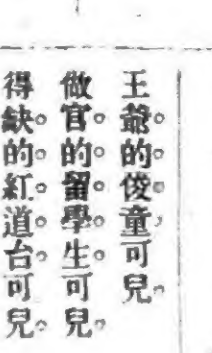 王爺的俊童可兒。
做官的留學生可兒。
得缺的紅道台可兒。